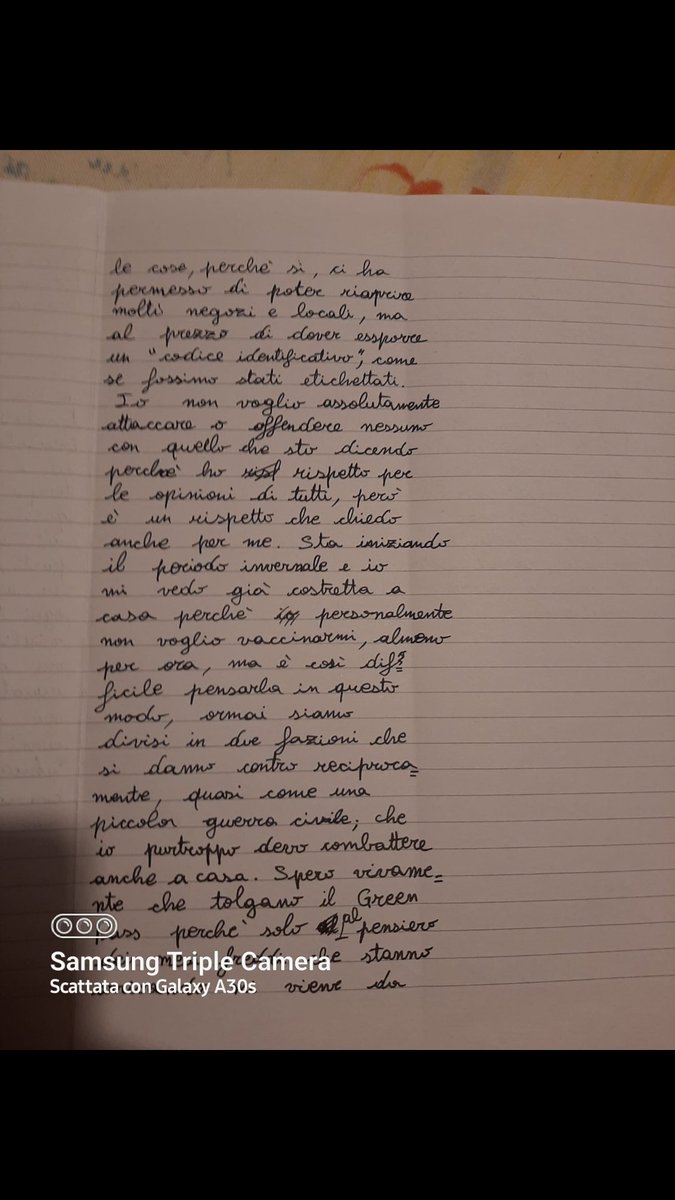 le cose, perchè si, ci ha
permesso di poter riaprire
molti negozi e locali, ma
al prezzo di dover essporre
un "codice identificativo", come
se fossimo stati etichettati.
Io non voglio assolutamente
attaccare o offendere nessuno
con quello che sto dicendo
perchè ho rispetto per
le opinioni di tutti, però
è un rispetto che chiedo
anche per me. Sta iniziando
il periodo invernale e io
mi vedo già costretta a
casa perchè personalmente
non voglio vaccinarmi, almeno
per ora, ma è così dif=
ficile pensarla in questo
modo, ormai siamo
divisi in due fazioni che
si danno contro reciproca=
mente, quasi come una
piccola guerra civile, che
io purtroppo devo combattere
anche a casa. Spero vivame=
nte che tolgano il Green
pass perchè solo al pensiero
che stanno
viene da
Samsung Triple Camera
Scattata con Galaxy A30s